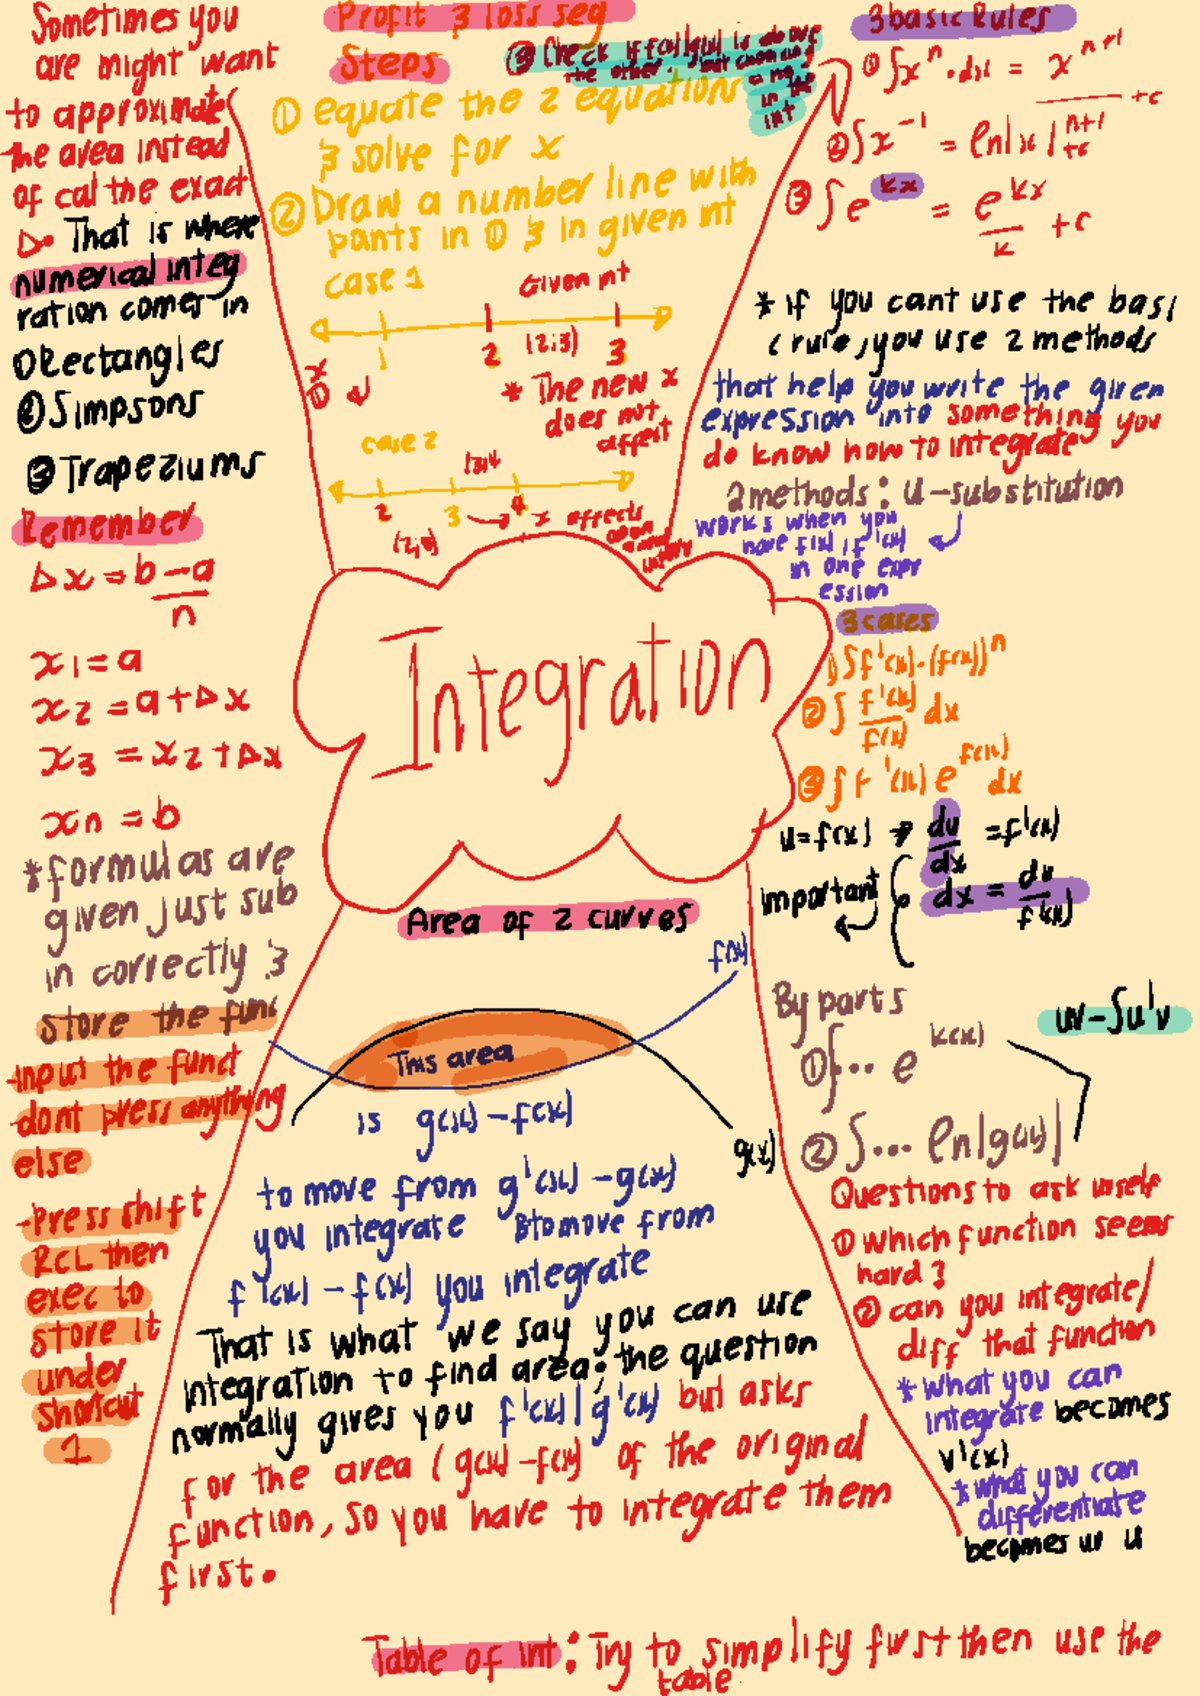 Sometimes you
are might want
to approximate
the area instead
of cal the exact
That is where
numerical integ
ration comes in
① Rectangles
② Simpsons
③ Trapeziums
Remember
Δx = b - a
n
x1 = a
x2 = a + Δx
x3 = x2 + Δx
xn = b
* formulas are
given just sub
in correctly &
store the func
- input the funct
dont press anything
else
- Press shift
RCL then
exec to
store it
under
shortcut
1
Profit & loss seg
Steps
③ Check if f(x)/g(x) is above
the other,
in the
int
① equate the 2 equations
& solve for x
② Draw a number line with
points in ① & in given int
case 1
Given int
1 2 (2;3) 3
* The new x
does not
affect
case 2
2 3 4
x affects
Integration
3 basic Rules
① ∫x^n · dx = x^n+1
n+1 + c
② ∫x^-1 = ln|x| + c
③ ∫e^kx = e^kx
k + c
* if you cant use the basi
c rule, you use 2 methods
that help you write the given
expression into something you
do know how to integrate
2 methods: u-substitution
works when you
have f(x) & f'(x)
in one expr
ession
3 cases
① ∫f'(x)·(f(x))^n
② ∫ f'(x) dx
f(x)
③ ∫f'(x) e^f(x) dx
u = f(x) → du = f'(x)
dx
important
dx = du
f'(x)
By parts
uv - ∫u'v
① ∫... e^k(x)
② ∫... ln|g(x)|
Questions to ask urself
① which function seems
hard?
② can you integrate/
diff that function
* what you can
integrate becomes
v'(x)
* what you can
differentiate
becomes ur u
Area of 2 curves
f(x)
This area
is g(x) - f(x)
g(x)
to move from g'(x) - g(x)
you integrate & to move from
f'(x) - f(x) you integrate
That is what we say you can use
integration to find area; the question
normally gives you f'(x) | g'(x) but asks
for the area (g(x) - f(x)) of the original
function, so you have to integrate them
first.
Table of int: Try to simplify first then use the
table